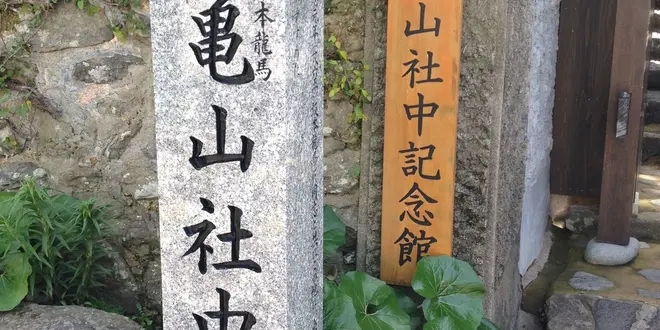 本龍馬
亀山社中
山社中記念館